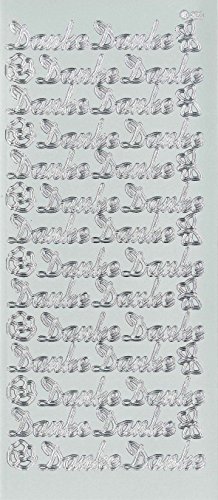 Danke Danke
Danke Danke
Danke Danke
Danke Danke
Danke Danke
Danke Danke
Danke Danke
Danke Danke
Danke Danke
Danke Danke
Danke Danke
Danke Danke
Danke Danke
Danke Danke